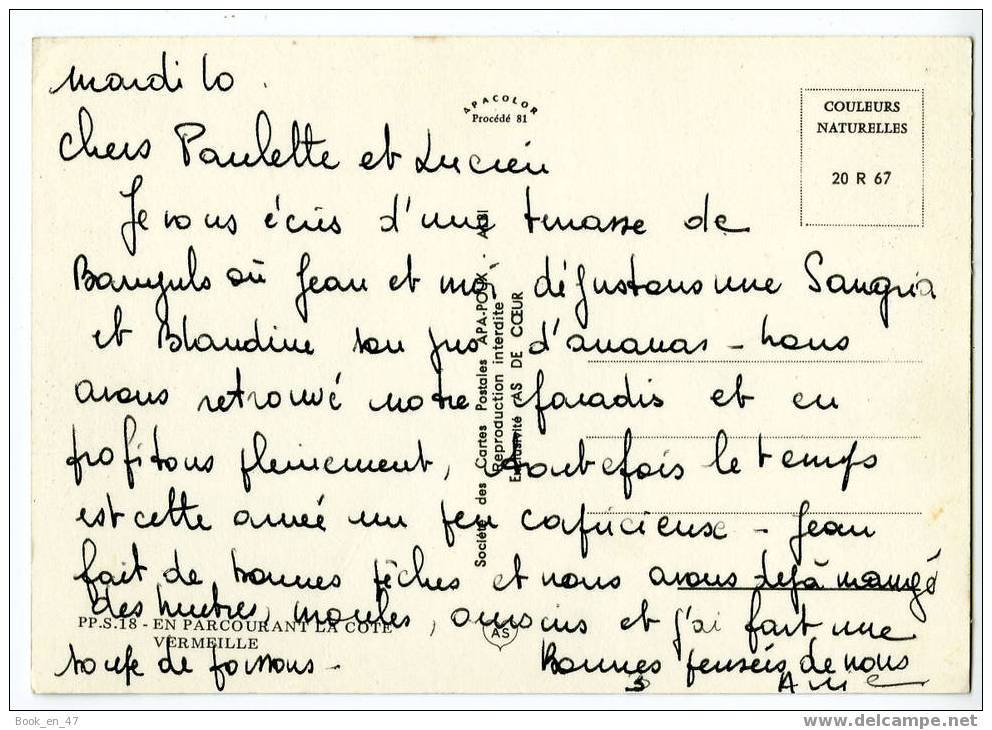 mardi 10.
APACOLOR
Procédé 81
COULEURS
NATURELLES
20 R 67
Chers Paulette et Lucien
Je vous écris d'une terrasse de
Banyuls où Jean et moi dégustons une Sangria
et Blandine son jus d'ananas - nous
avons retrouvé notre paradis et en
profitons pleinement, toutefois le temps
est cette année un peu capricieuse - Jean
fait de bonnes pêches et nous avons déjà mangé
des huitres, moules, oursins et j'ai fait une
soupe de poissons -
Bonnes pensées de nous
3
Société des Cartes Postales APA-POUX - ALBI
Reproduction interdite
Exclusivité AS DE CŒUR
PP.S.18 - EN PARCOURANT LA COTE
VERMEILLE
AS
Book_en_47
www.delcampe.net